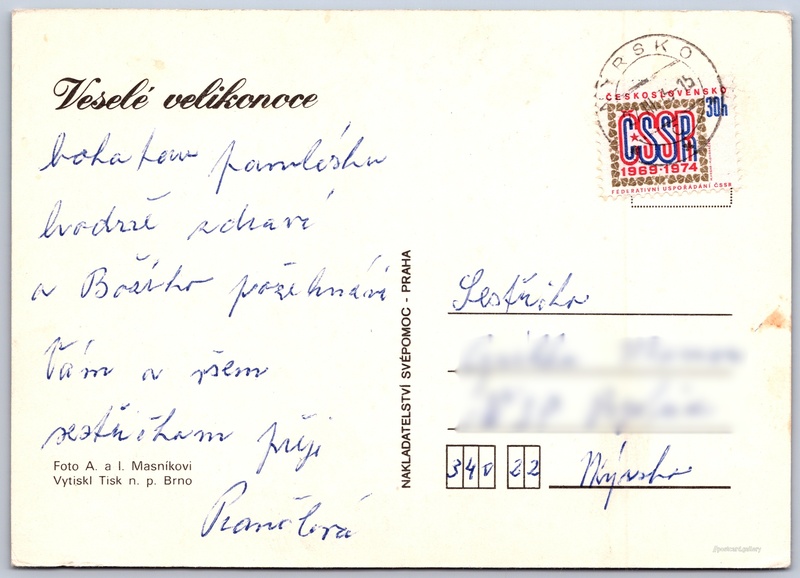 Veselé velikonoce
bohatou pomlázku
hodně zdraví
a Božího požehnání
Vám a všem
sestřičkám přeji
Foto A. a I. Masníkovi
Vytiskl Tisk n. p. Brno
NAKLADATELSTVÍ SVÉPOMOC - PRAHA
ÝRSKO
15
ČESKOSLOVENSKO
30h
ČSSR
1969-1974
FEDERATIVNÍ USPOŘÁDÁNÍ ČSSR
Sestřička
340 22 Nýrsko